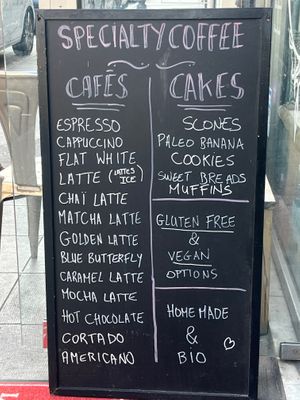 SPECIALTY COFFEE
CAFÉS
ESPRESSO
CAPPUCCINO
FLAT WHITE
LATTE (LATTES ICE)
CHAÏ LATTE
MATCHA LATTE
GOLDEN LATTE
BLUE BUTTERFLY
CARAMEL LATTE
MOCHA LATTE
HOT CHOCOLATE
CORTADO
AMERICANO
CAKES
SCONES
PALEO BANANA
COOKIES
SWEET BREADS
MUFFINS
GLUTEN FREE
&
VEGAN
OPTIONS
HOME MADE
&
BIO